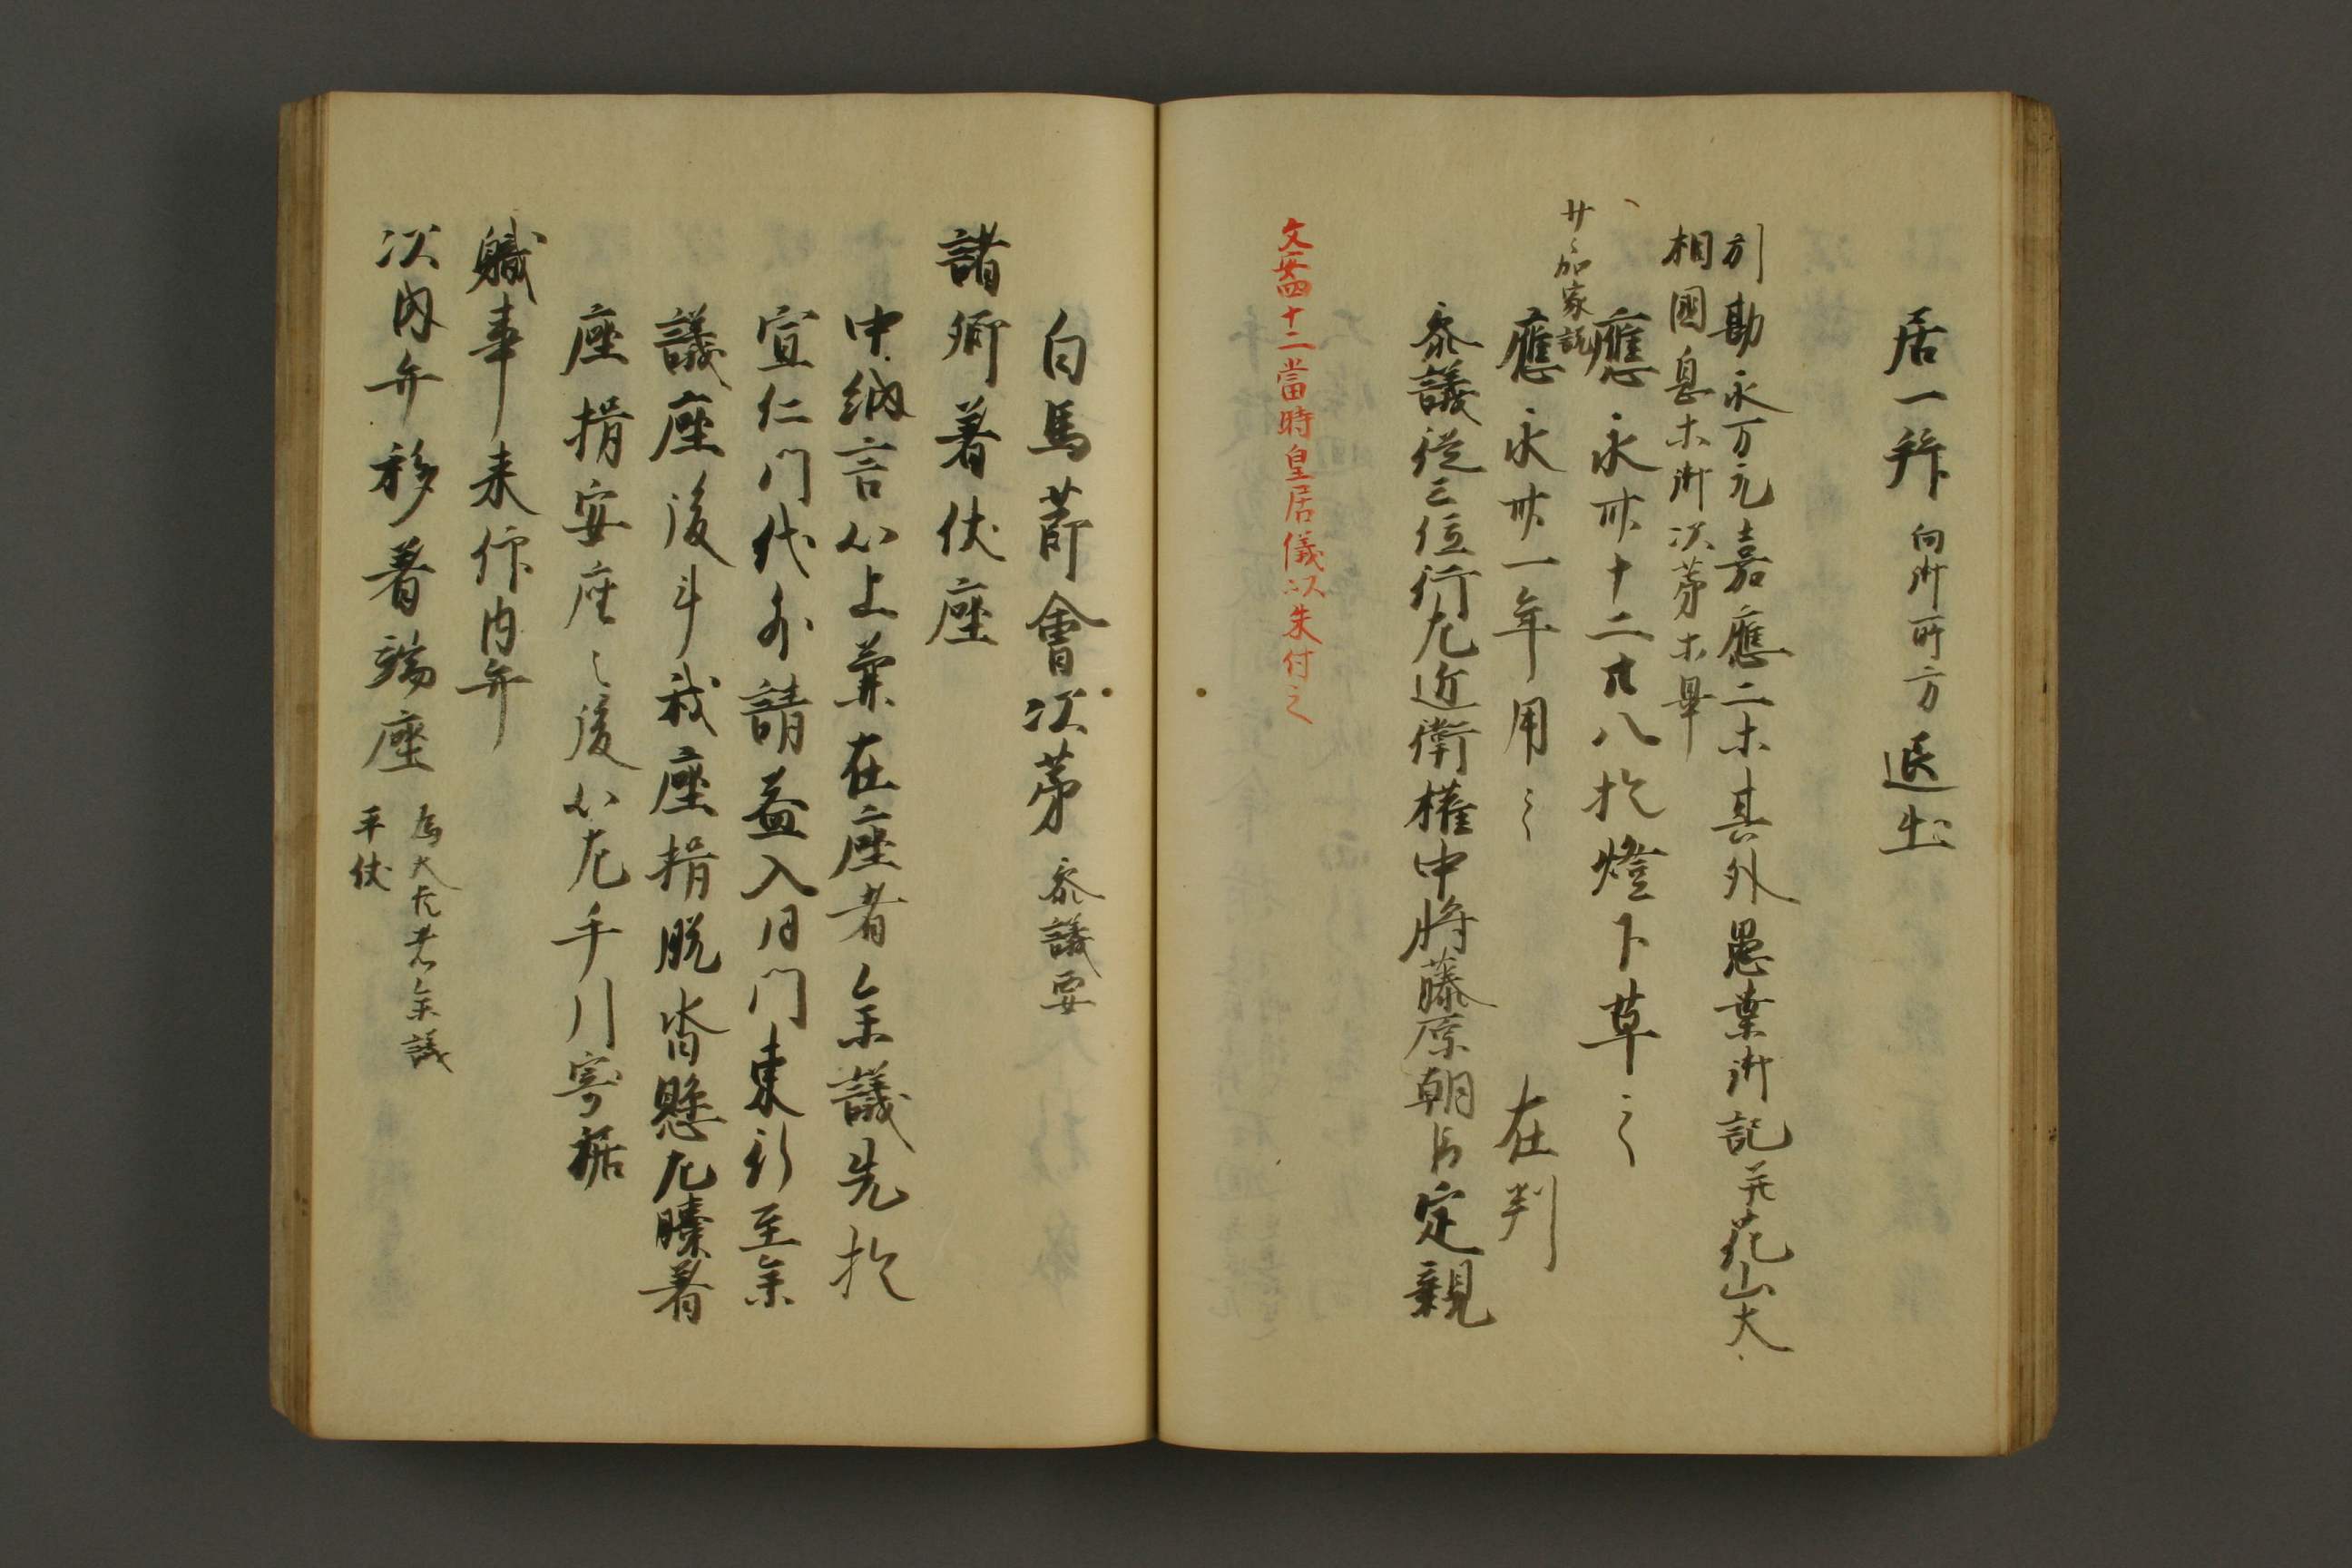 居一拜 向御所方 退出
引勘永万元嘉應二木其外愚葉御記并花山大
相國息木御次苐木畢
應永卅十二廿八於燈下草之
廿々加家説
應永卅一年用之 在判
參議従三位行左近衛權中将藤原朝臣定親
文安四十二當時皇居儀以朱付之
白馬莭會次苐 參議要
諸卿着仗座
中納言以上兼在座者参議先於
宣仁门代外請益入同门東行至参
議座後斗我座揖脱沓懸左膝着
座揖安座之後以左手引寄裾
職事来仰内弁
次内弁移着端座 為大臣者参議
平伏